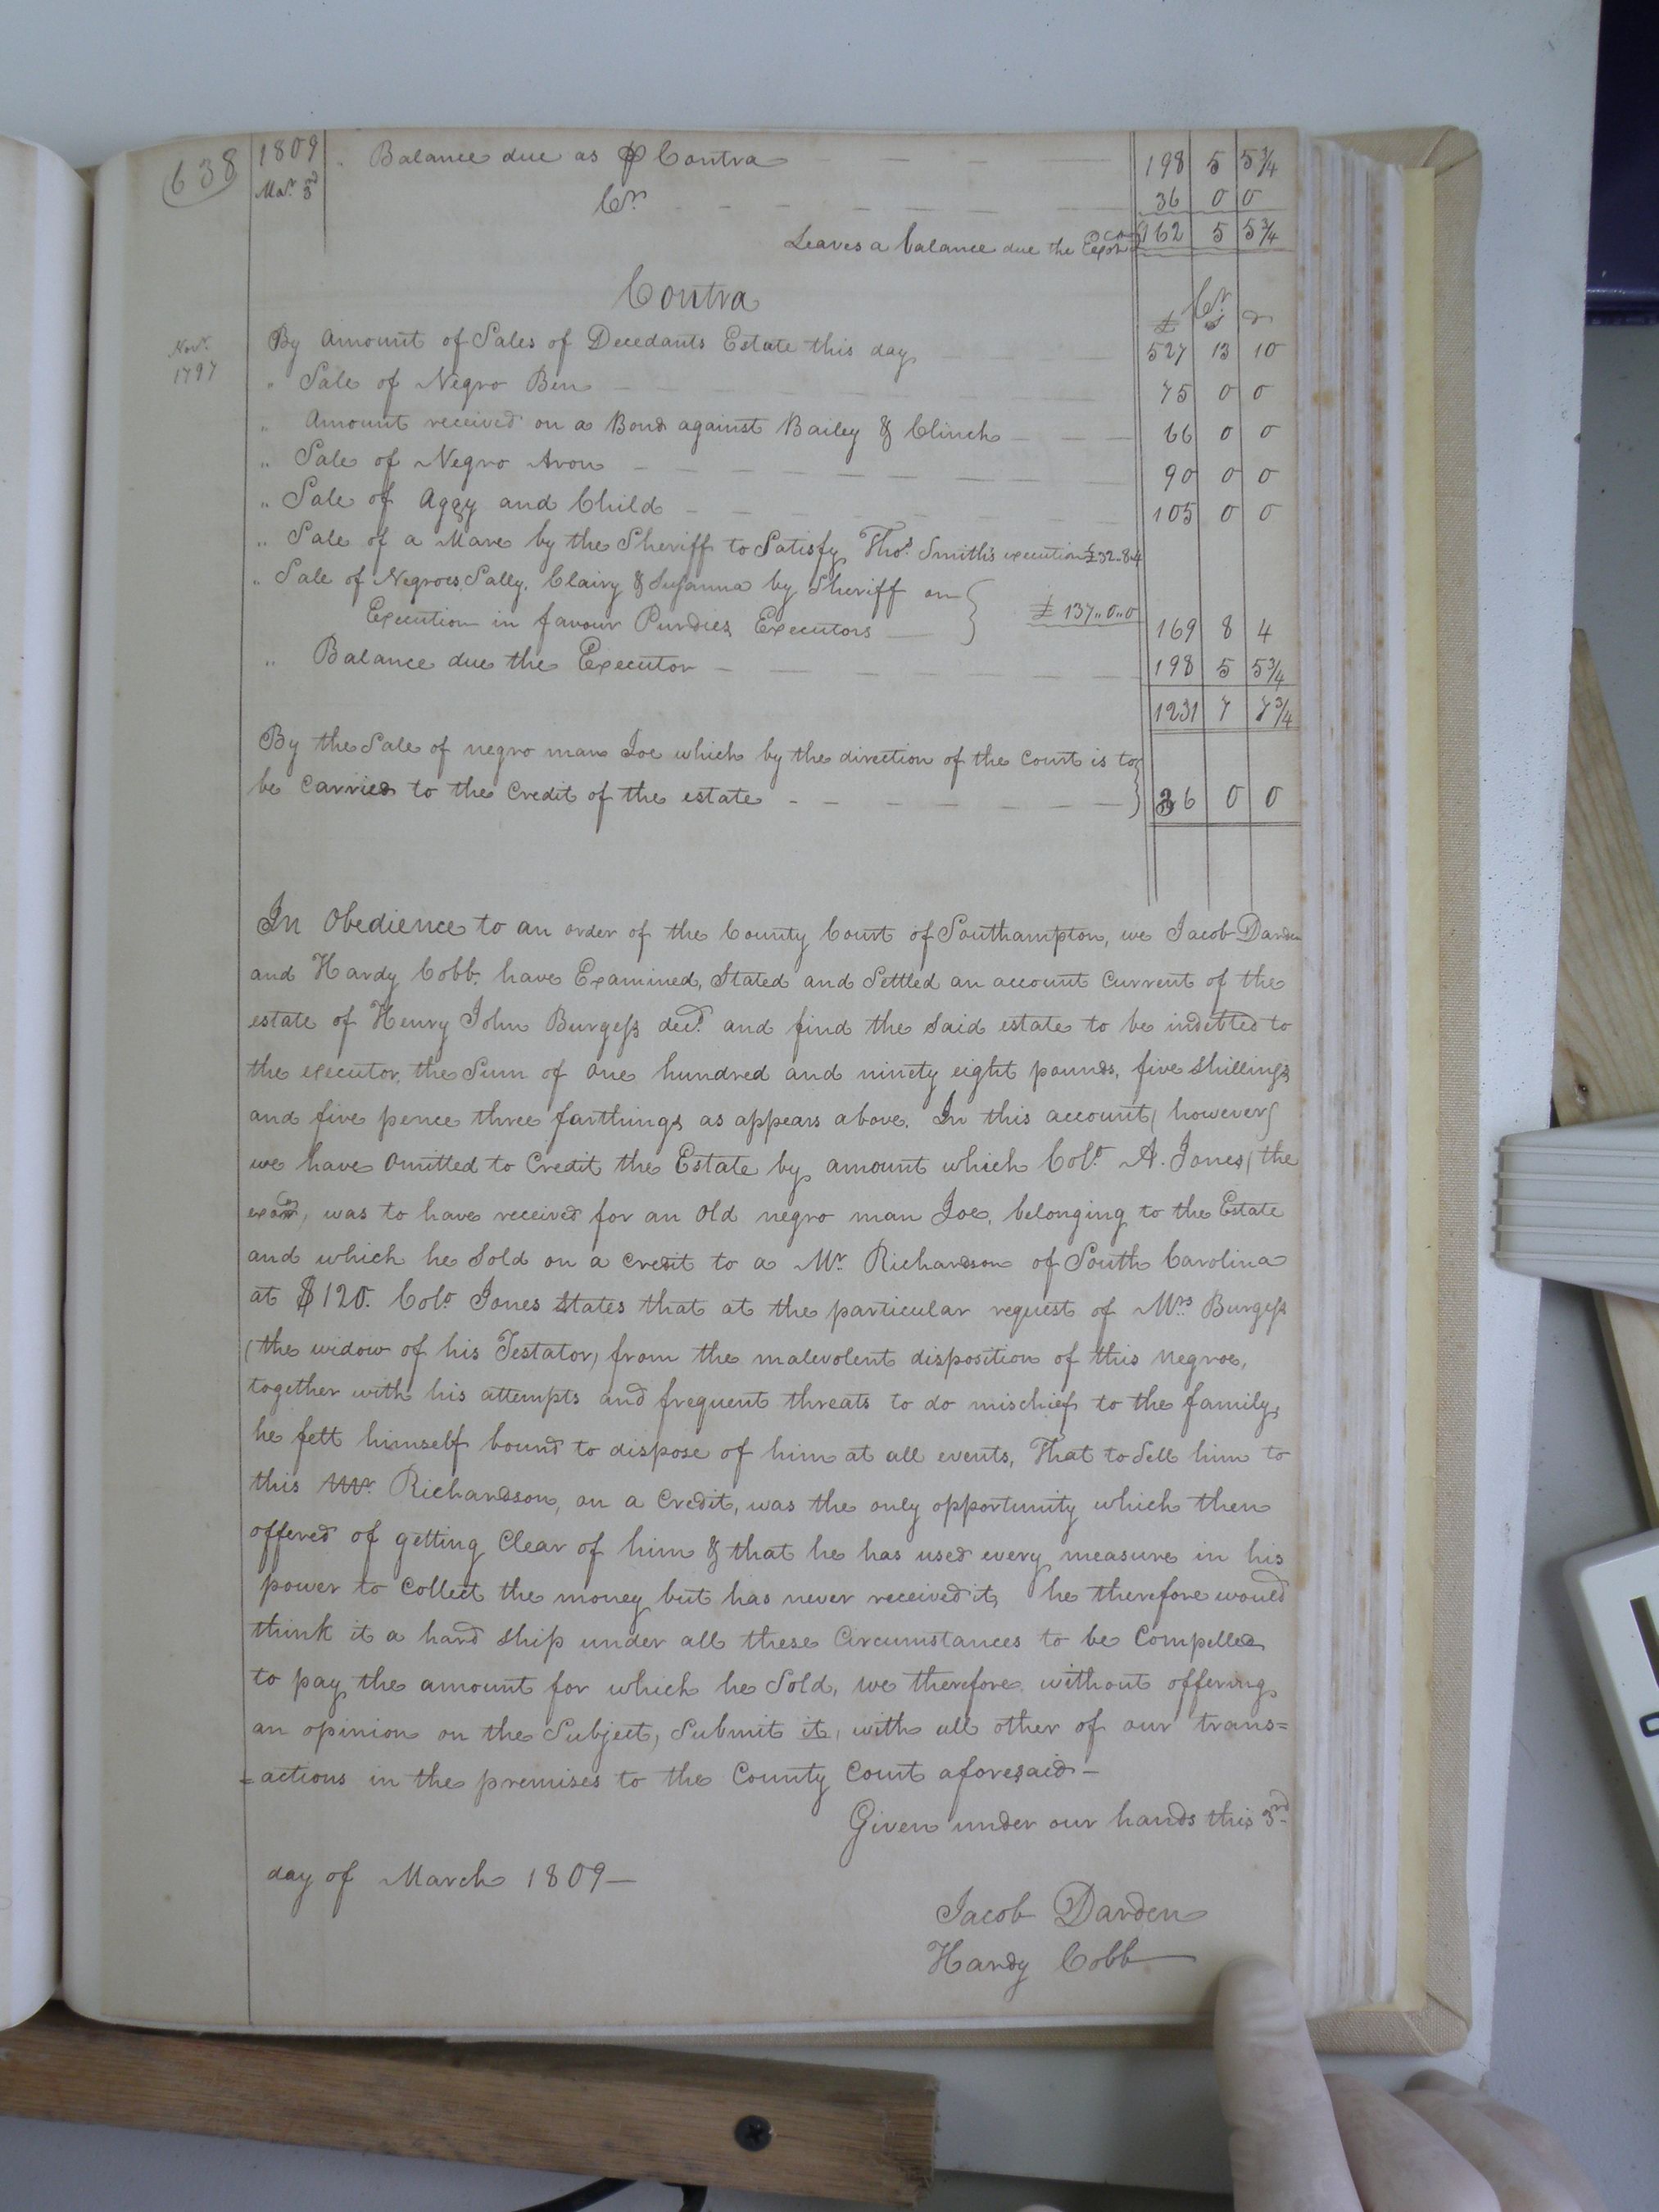 638
1809 " Balance due as ⅌ Contra 198 5 5¾
Mar. 3d Cr. 36 0 0
Leaves a balance due the Exor 162 5 5¾
Contra Cr
£ s d
Novr. 1797 By Amount of Sales of Decedants Estate this day 527 13 10
" Sale of Negro Ben 75 0 0
" Amount received on a Bond against Bailey & Clinch 66 0 0
" Sale of Negro Aron 90 0 0
" Sale of Aggy and Child 105 0 0
" Sale of a Mare by the Sheriff to Satisfy Thos. Smith's execution £32.8.4
" Sale of Negroes Sally, Clairy & Susanna by Sheriff on
Execution in favour Purdies Executors £137..0..0 169 8 4
" Balance due the Executor 198 5 5¾
1231 7 7¾
By the Sale of negro man Joe which by the direction of the court is to
be carried to the credit of the estate 36 0 0
In Obedience to an order of the County Court of Southampton, we Jacob Darden
and Hardy Cobb have Examined, Stated and Settled an account Current of the
estate of Henry John Burgess decd. and find the said estate to be indebted to
the executor, the Sum of one hundred and ninety eight pounds, five shillings
and five pence three farthings as appears above. In this account (however)
we have omitted to Credit the Estate by amount which Colo. A. Jones (the
exor), was to have received for an old negro man Joe, belonging to the Estate
and which he Sold on a credit to a Mr. Richardson of South Carolina
at $120. Colo. Jones States that at the particular request of Mrs. Burgess
(the widow of his Testator) from the malevolent disposition of this negroe,
together with his attempts and frequent threats to do mischief to the family,
he fett himself bound to dispose of him at all events, That to Sell him to
this Mr. Richardson, on a Credit, was the only opportunity which then
offered of getting Clear of him & that he has used every measure in his
power to Collect the money but has never received it, he therefore would
think it a hard ship under all these Circumstances to be Compelled
to pay the amount for which he Sold, we therefore without offering
an opinion on the Subject, Submit it, with all other of our trans=
=actions in the premises to the County Court aforesaid –
Given under our hands this 3rd
day of March 1809 –
Jacob Darden
Hardy Cobb